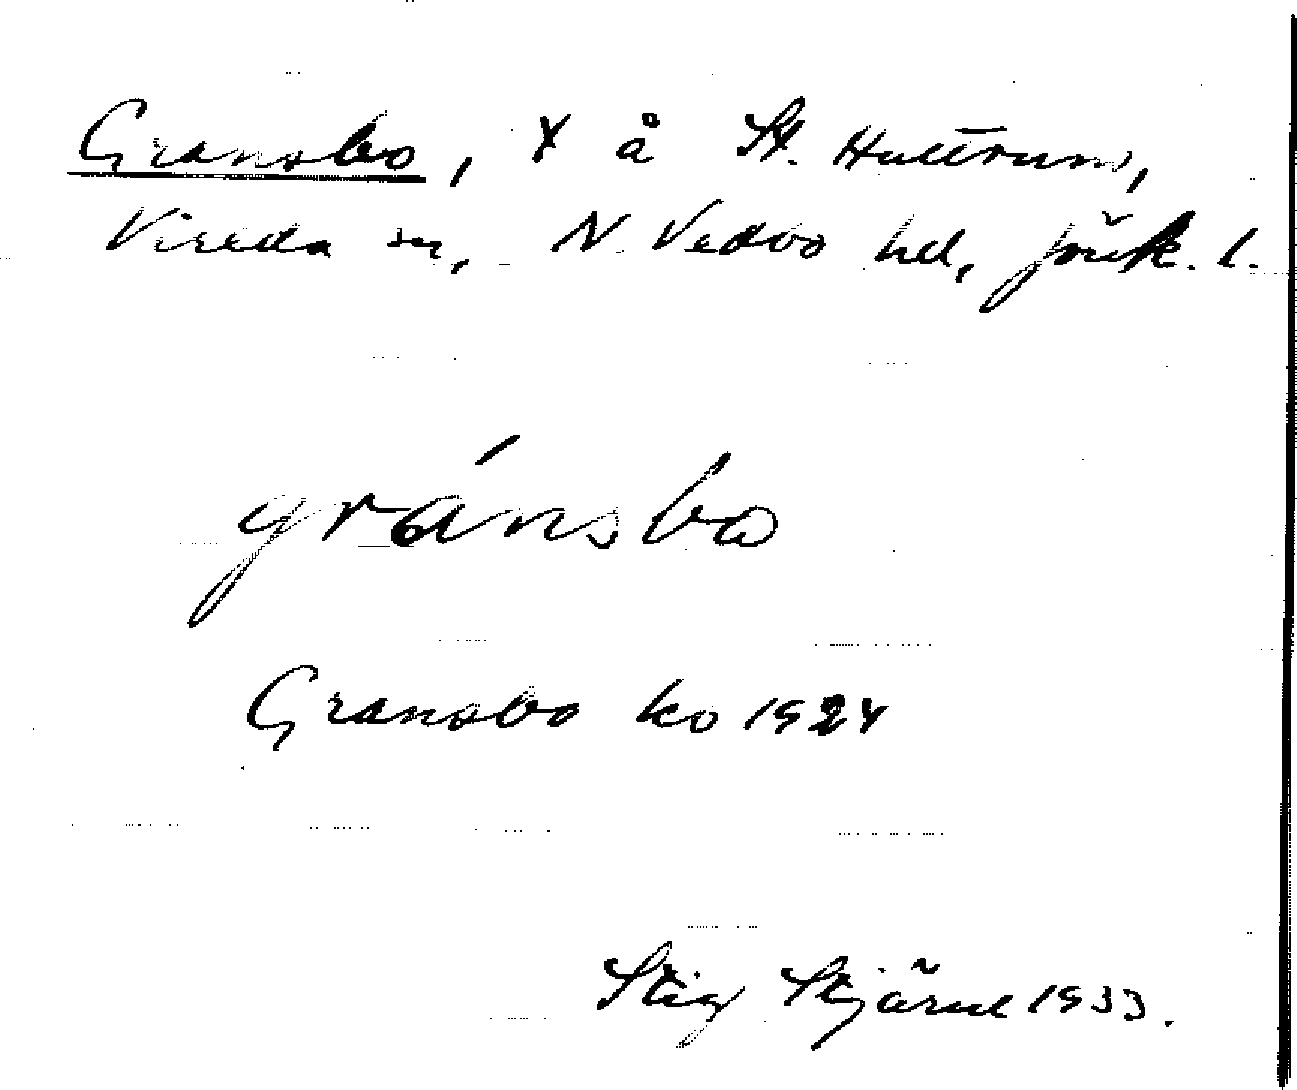 Gransbo, × å St. Hultrum,
Vireda sn, N. Vedbo hd, Jönk. l.
gránsbo
Gransbo ko 1924
Stig Stjärne 1933.